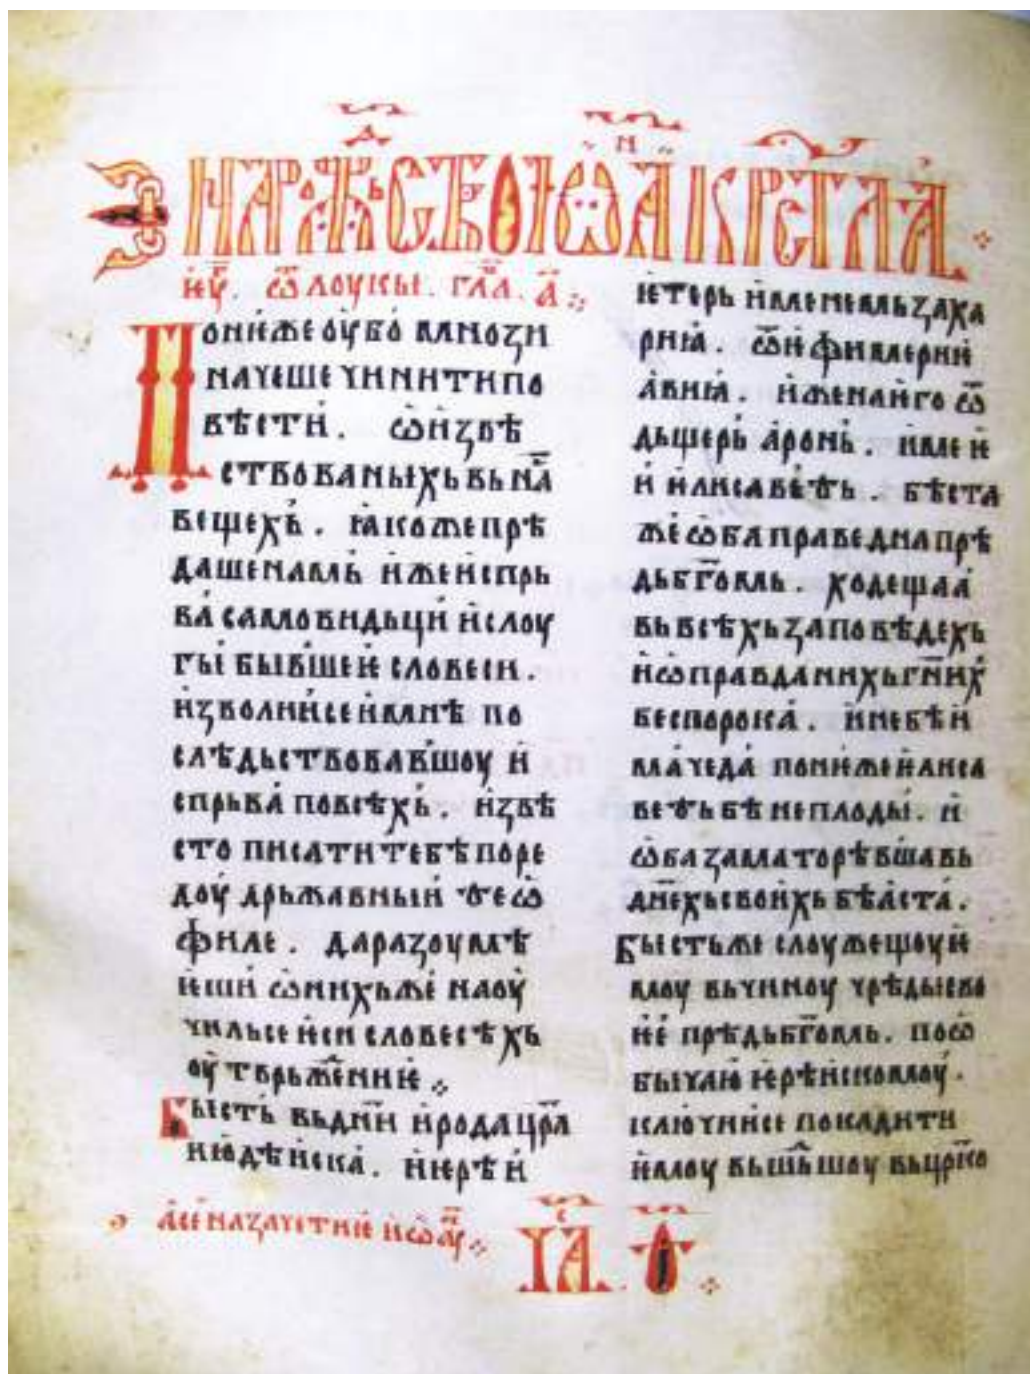 НА РОЖДСТВО ІѠА КРСТЛА
ѥѵ҃. ѿ лоукы. гл҃а. а҃
Понѥже оубо мнози
начеше чинити по
вѣсти. ѡ извѣ
ствованыхь вь на҃
вещехь. ꙗкоже прѣ
даше намь иже испрь
ва самовидьци и слоу
гы бывшеѥ словеси.
изволи се и мнѣ по
слѣдьствовавшоу и
спрьва по всѣхь. извѣ
сто писати тебѣ поре
доу дрьжавныи ѳеѡ
филе. да разоумѣ
ѥши ѡ нихьже наоу
чиль се ѥси словесѣхь
оутврьжⷣениѥ
Бысть вь дн҃и ирода цр҃а
июдѣиска. иѥрѣи
ѥтерь именемь заха
риꙗ. ѿ ѥфимерии
авиꙗ. и жена ѥго ѿ
дьщерь аронь. име ѥ
и ѥлисаветь. бѣста
же ѡба праведна прѣ
дь бг҃омь. ходеща
вь всѣхь заповѣдехь
и ѡправданихь гн҃ихь
бес порока. и не бѣ и
ма чеда понѥже ѥлиса
веть бѣ неплоды. и
ѡба заматорѣвша вь
дн҃ехь своихь бѣаста.
Бысть же слоужещоу ѥ
моу вь чиноу чрѣды сво
ѥѥ прѣдь бг҃омь. по ѡ
бычаю иѥрѣискомоу.
ключи се покадити
ѥмоу вьшьⷣшоу вь цр҃ко